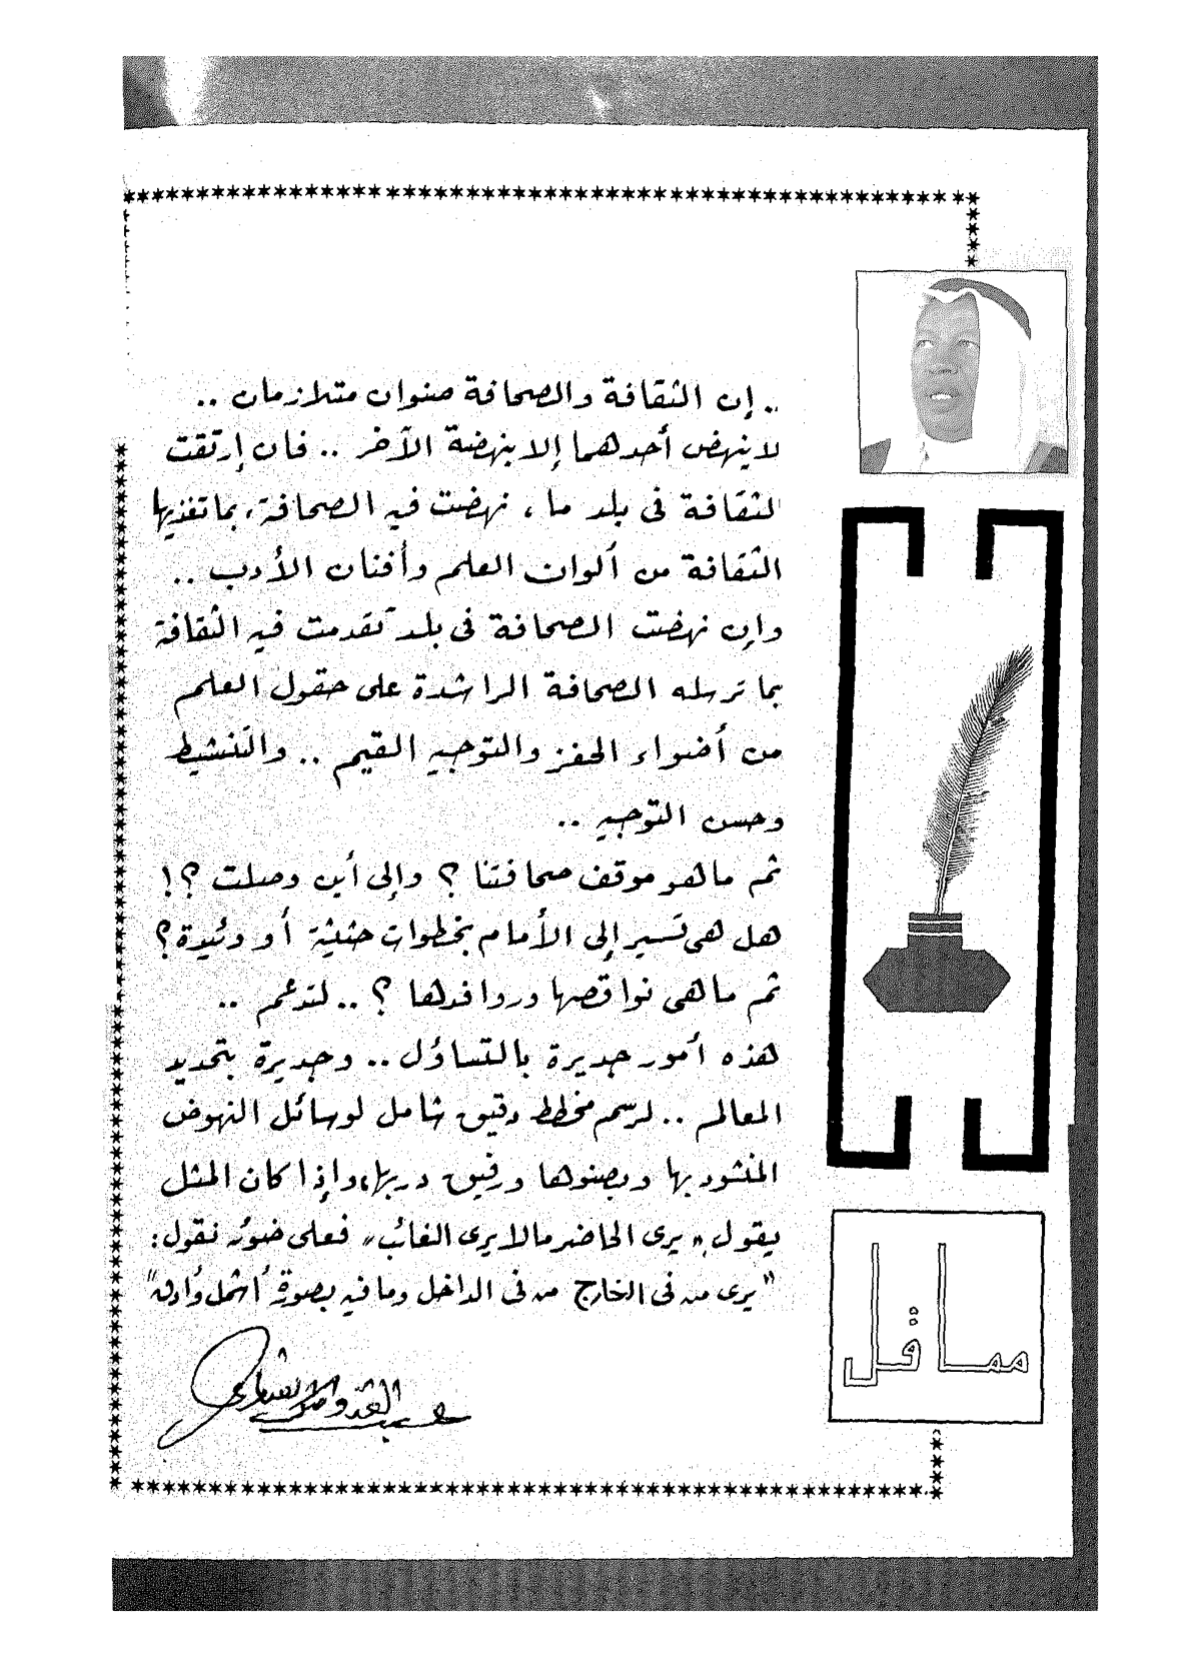 .. إن الثقافة والصحافة صنوان متلازمان ..
لا ينهض أحدهما إلا بنهضة الآخر .. فان إرتقت
لثقافة فى بلد ما ، نهضت فيه الصحافة ، بما تغذيها
الثقافة من ألوان العلم وأفنان الأدب ..
وإن نهضت الصحافة فى بلد تقدمت فيه الثقافة
بما ترسله الصحافة الراشدة على حقول العلم
من أضواء الحفز والتوجيه القيم .. والتنشيط
وحسن التوجيه ..
ثم ما هو موقف صحافتنا ؟ وإلى أين وصلت ؟!
هل هى تسير إلى الأمام بخطوات حثيثة أو وئيدة ؟
ثم ما هى نواقصها وروافدها ؟ .. لتدعم ..
هذه أمور جديرة بالتساؤل .. وجديرة بتحديد
المعالم .. لرسم مخطط دقيق شامل لوسائل النهوض
المنشود بها وبصنوها ورفيق دربها، وإذا كان المثل
يقول " يرى الحاضر مالا يرى الغائب " فعلى ضوئه نقول :
" يرى من فى الخارج من فى الداخل وما فيه بصورة أشمل وأدق "
عبد القدوس الانصارى